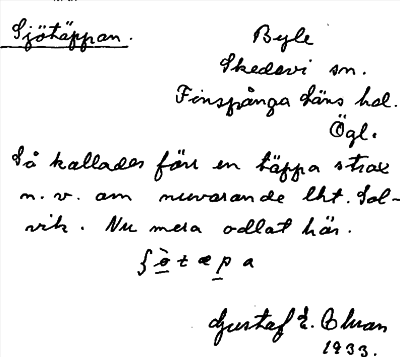 Sjötäppan.
Byle
Skedevi sn.
Finspånga läns hd.
Ögl.
Så kallades förr en täppa strax
n. v. om nuvarande lht. Sol-
vik. Nu mera odlat här.
Gustaf E. Ohman
1933.